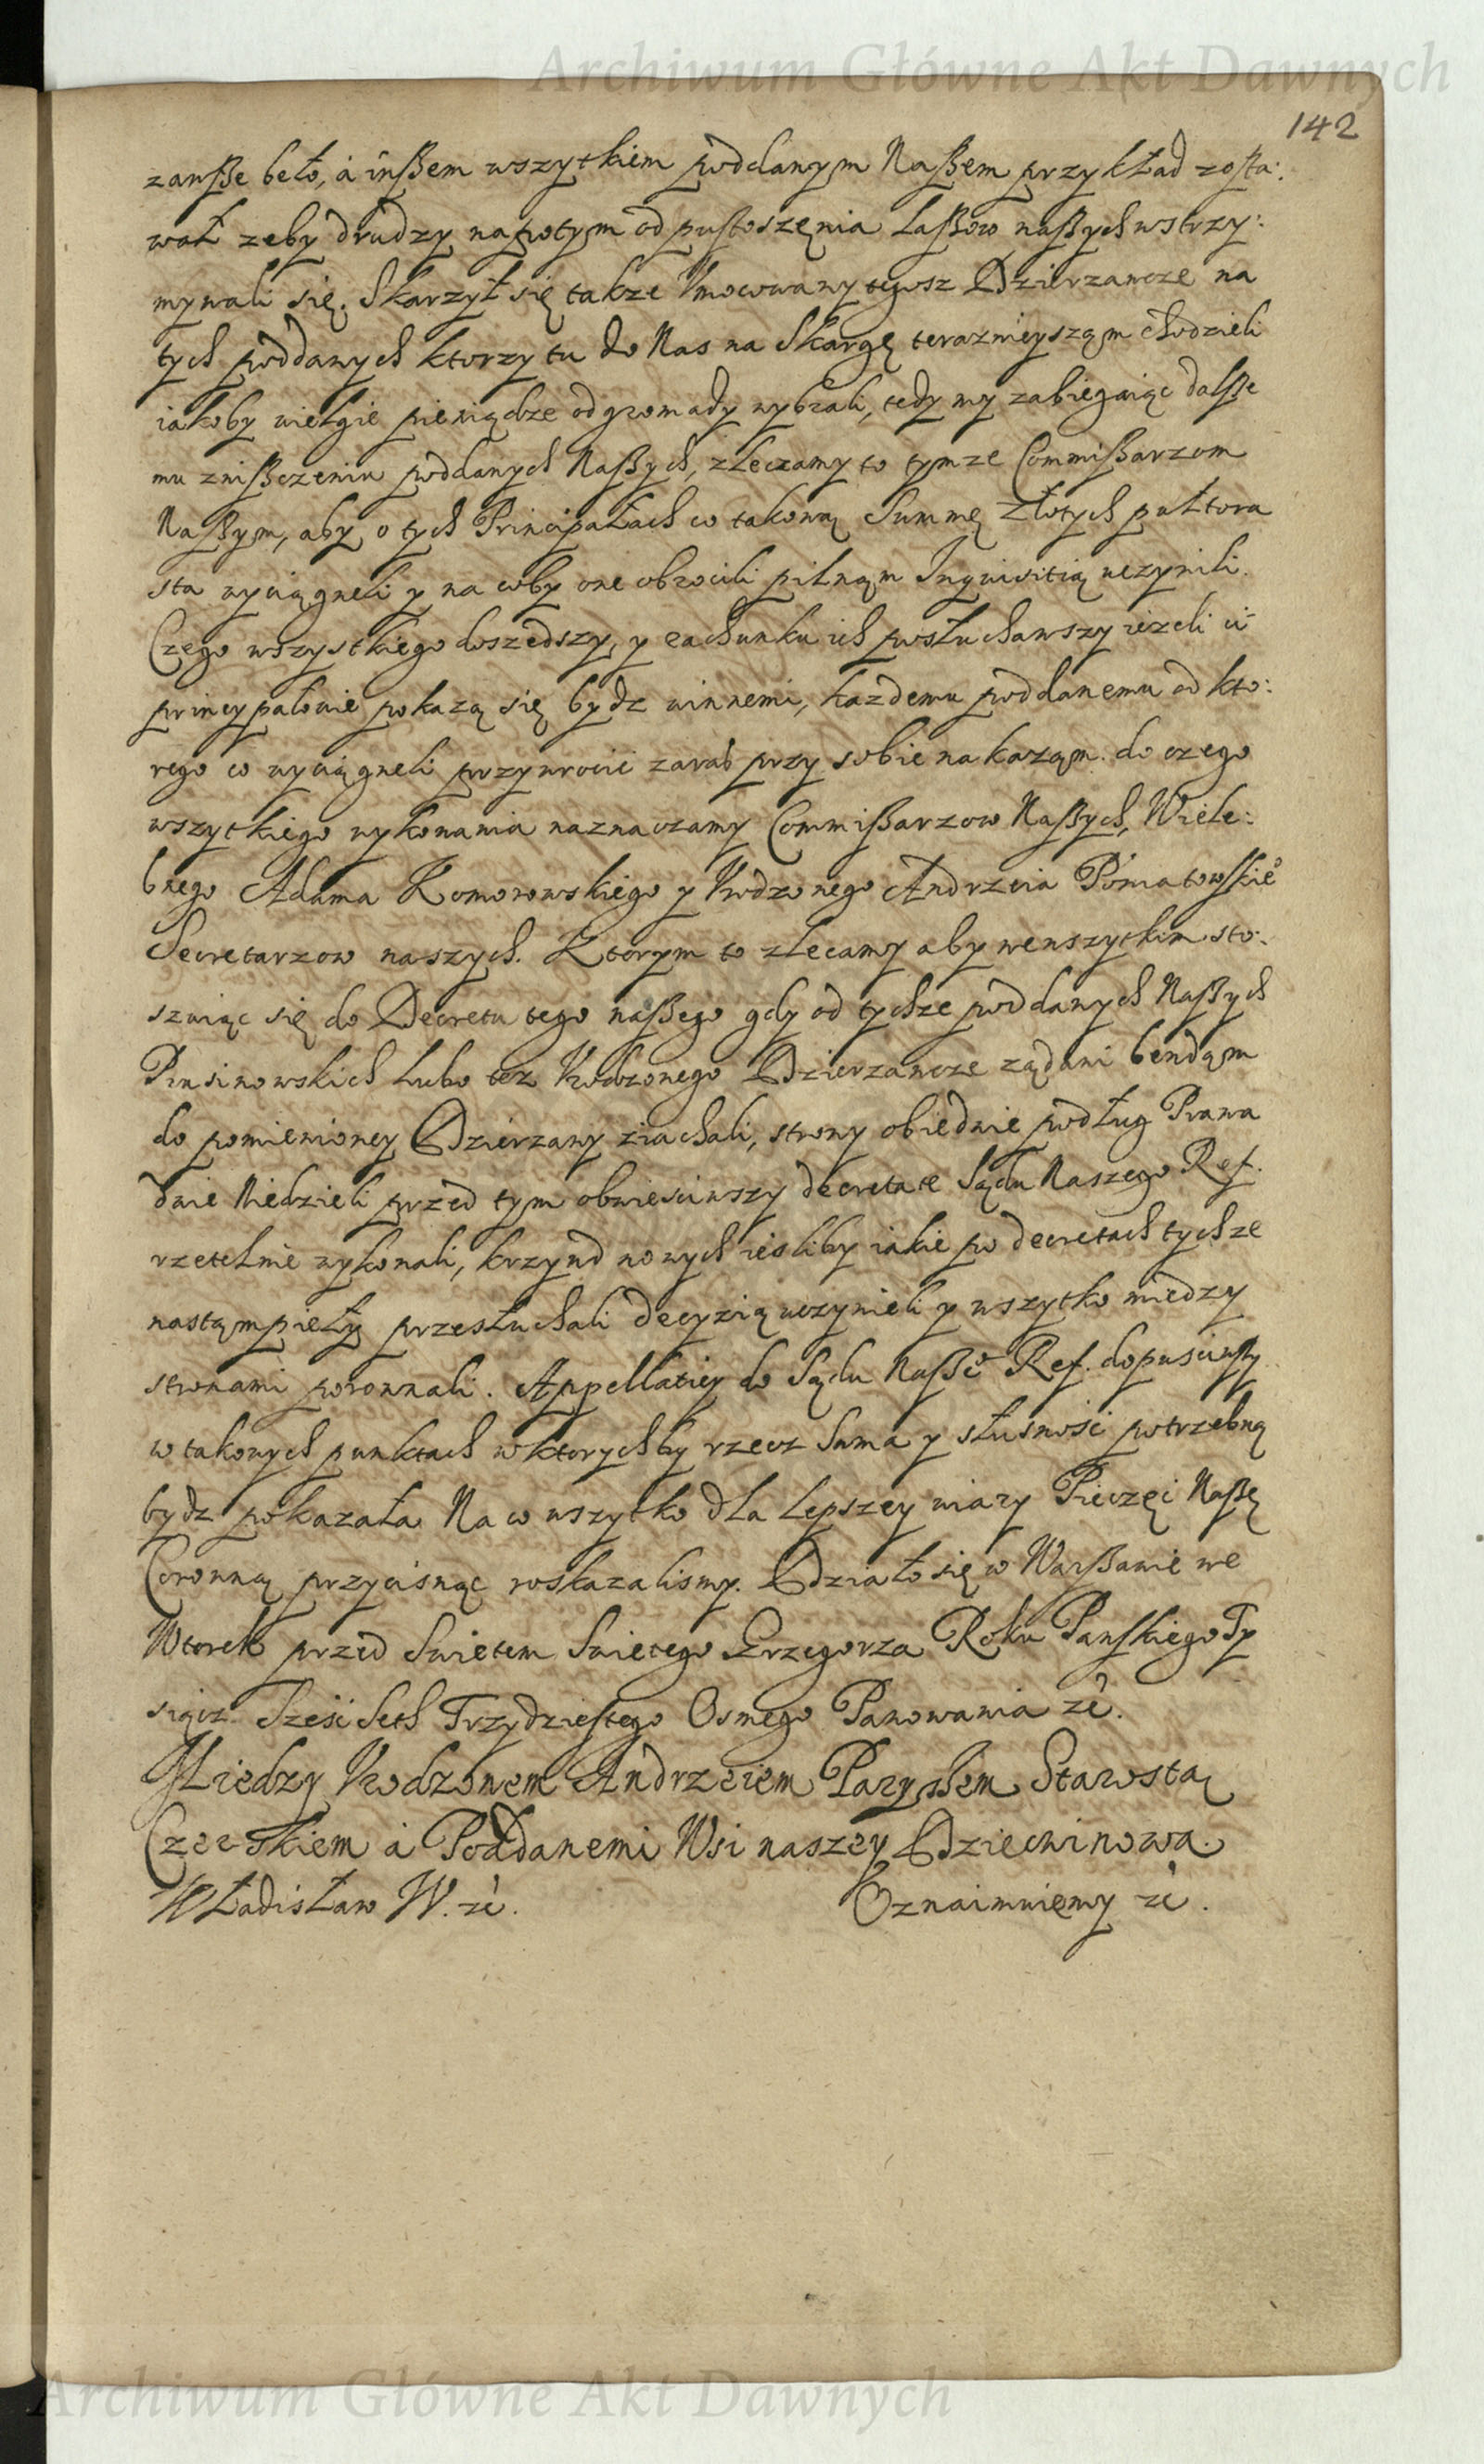 Archiwum Główne Akt Dawnych
142
zawsße beło, á inßem wszytkiem poddanym Naßem przykład zosta:
wał zeby drudzy napotym od pustoszęnia Laßow naßych wstrzy:
mywali się. Skarzył się takze Vmocowany tegosz Dzierzawcze na
tych poddanych ktorzy tu do Nas na Skargę teraznieysząm chodzieli
iakoby wielgie pieniądze od gromady wybrali, tedy my zabiegaiąc dalsße
mu znißczeniu poddanych Naßych, zleczamy to tymze Commißarzom
Naßym, aby o tych Principałach co takową Summę złotych pułtora
sta wyciągneli y na coby one obrocili pilnąm Inquisitią uczynili.
Czego wszystkiego doszedszy, y rachunku ich posłuchawszy iezeli ci
princypałowie pokazą się bydz winnemi, kazdemu poddanemu od kto:
rego co wyciągneli przywrocic zaraz przy sobie nakaząm. do czego
wszytkiego wykonania naznaczamy Commißarzow Naßych, Wiele:
bnego Adama Komorowskiego y Vrodzonego Andrzeia Poniatowskie͡o
Secretarzow naszych. Ktorym to zlecamy aby wewszytkim sto:
szuiąc się do Decretu tego naßego gdy od tychze poddanych Naßych
lubo tez Vrodzonego Dzierzawcze ządani bendąm
do pomienioney Dzierzawy ziachali, strony obiedwie podług Prawa
dwie Niedzieli przed tym obwiesciwszy decreta te Sądu Naszego Ref.
rzetelnie wykonali, krzywd nowych iesliby iakie po decretach tychze
nastąmpieły przesłuchali decyzią uczynieli y wszytko miedzy
stronami porownali. Appellatiey do Sądu Naße͡o Ref. dopusciwszy
w takowych punktach w ktorychby rzecz Sama y słusnosc potrzebną
bydz pokazała Na co wszytko dla lepszey wiary Pieczęc Naßę
Coronną przycisnąc roskazalismy. Działo się w Warßawie we
Wtorek przed Swietem Swietego Grzegorza Roku Panskiego Ty
siącz Szesc Seth Trzydziestego Osmego Panowania zc̀.
Miedzy Vrodzonem Andrzeiem Paryssem Starostą
Czerskiem á Poddanemi Wsi naszey Dziecinowa.
Władisław IV. zc̀. Oznaimuięmy zc̀.
Archiwum Główne Akt Dawnych